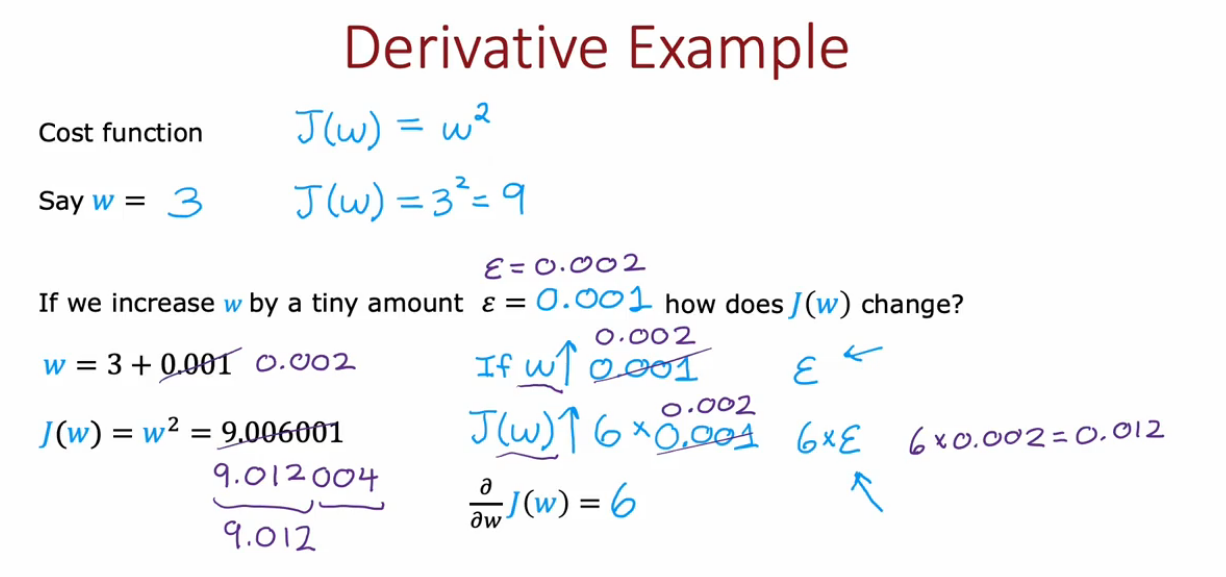 Derivative Example
Cost function J(w) = w²
Say w = 3 J(w) = 3² = 9
ε = 0.002
If we increase w by a tiny amount ε = 0.001 how does J(w) change?
0.002
w = 3 + 0.001 0.002 If w↑ 0.001 ε ←
0.002
J(w) = w² = 9.006001 J(w)↑ 6 × 0.001 6×ε 6 × 0.002 = 0.012
9.012004
∂/∂w J(w) = 6
9.012